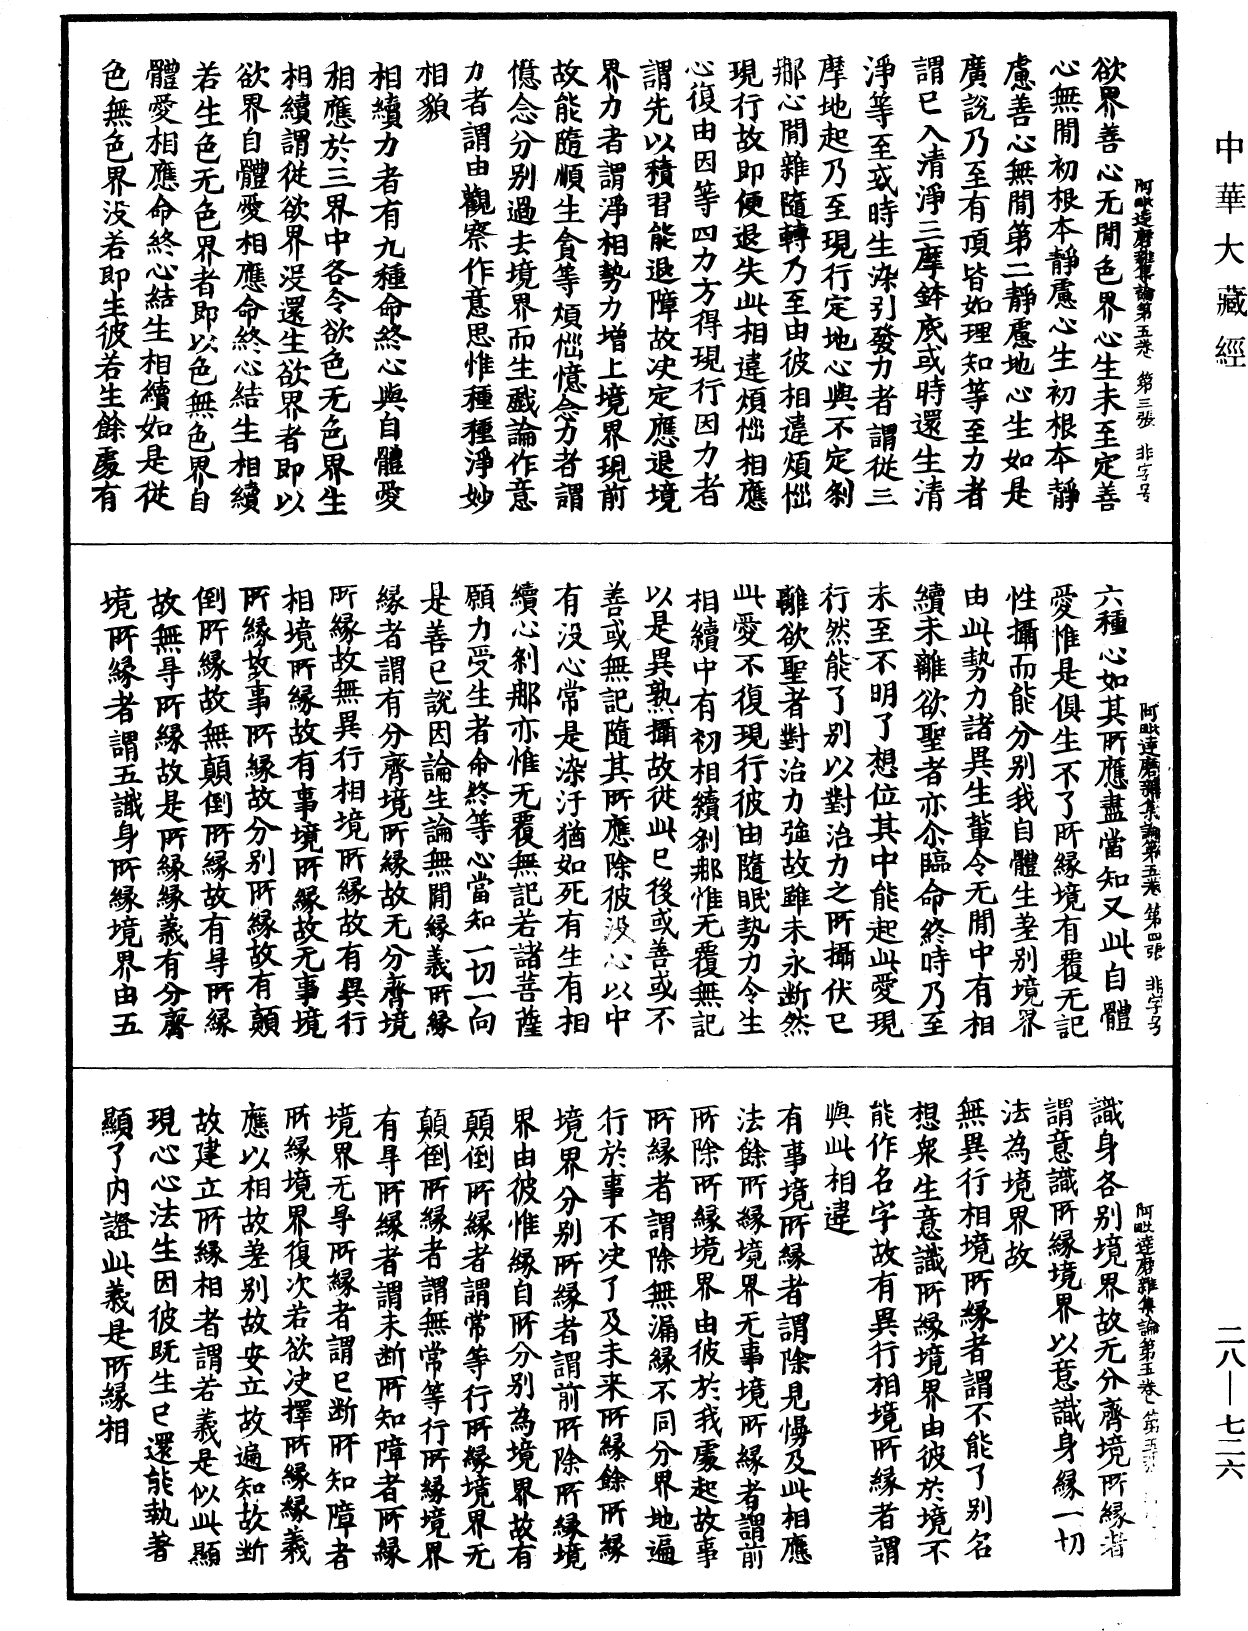 中華大藏經
欲界善心无閒色界心生未至定善
心無閒初根本靜慮心生初根本靜
慮善心無閒第二靜慮地心生如是
廣說乃至有頂皆如理知等至力者
謂已入清淨三摩鉢底或時還生清
淨等至或時生染引發力者謂從三
摩地起乃至現行定地心與不定刹
那心閒雜隨轉乃至由彼相違煩惱
現行故即便退失此相違煩惱相應
心復由因等四力方得現行因力者
謂先以積習能退障故決定應退境
界力者謂淨相勢力增上境界現前
故能隨順生貪等煩惱憶念力者謂
憶念分別過去境界而生戲論作意
力者謂由觀察作意思惟種種淨妙
相貌
相續力者有九種命終心與自體愛
相應於三界中各令欲色无色界生
相續謂從欲界沒還生欲界者即以
欲界自體愛相應命終心結生相續
若生色无色界者即以色無色界自
體愛相應命終心結生相續如是從
色無色界没若即生彼若生餘處有
阿毗達磨雜集論第五卷 第三張 非字号
六種心如其所應盡當知又此自體
愛惟是俱生不了所緣境有覆无記
性攝而能分別我自體生差別境界
由此勢力諸異生輩令无閒中有相
續未離欲聖者亦尒臨命終時乃至
未至不明了想位其中能起此愛現
行然能了別以對治力之所攝伏已
離欲聖者對治力強故雖未永斷然
此愛不復現行彼由隨眠勢力令生
相續中有初相續刹那惟无覆無記
以是異熟攝故從此已後或善或不
善或無記隨其所應除彼没心以中
有没心常是染汙猶如死有生有相
續心刹那亦惟无覆無記若諸菩薩
願力受生者命終等心當知一切一向
是善已說因論生論無閒緣義所緣
緣者謂有分齊境所緣故无分齊境
所緣故無異行相境所緣故有異行
相境所緣故有事境所緣故无事境
所緣故事所緣故分別所緣故有顛
倒所緣故無顛倒所緣故有㝵所緣
故無㝵所緣故是所緣緣義有分齊
境所緣者謂五識身所緣境界由五
阿毗達磨雜集論第五卷 第四張 非字号
識身各別境界故无分齊境所緣者
謂意識所緣境界以意識身緣一切
法為境界故
無異行相境所緣者謂不能了別名
想衆生意識所緣境界由彼於境不
能作名字故有異行相境所緣者謂
與此相違
有事境所緣者謂除見慢及此相應
法餘所緣境界无事境所緣者謂前
所除所緣境界由彼於我處起故事
所緣者謂除無漏緣不同分界地遍
行於事不決了及未来所緣餘所緣
境界分別所緣者謂前所除所緣境
界由彼惟緣自所分別為境界故有
顛倒所緣者謂常等行所緣境界无
顛倒所緣者謂無常等行所緣境界
有㝵所緣者謂未斷所知障者所緣
境界无㝵所緣者謂已斷所知障者
所緣境界復次若欲決擇所緣緣義
應以相故差別故安立故遍知故斷
故建立所緣相者謂若義是似此顯
現心心法生因彼既生已還能執著
顯了內證此義是所緣相
阿毗達磨雜集論第五卷
二八—七二六